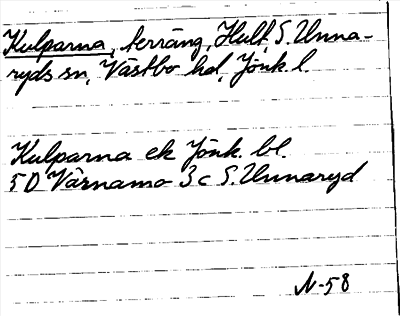 Kulparna, terräng, Hult, S. Unna-
ryds sn, Västbo hd, Jönk. l.
Kulparna ek Jönk. bl.
5D Värnamo 3c S. Unnaryd
N-58